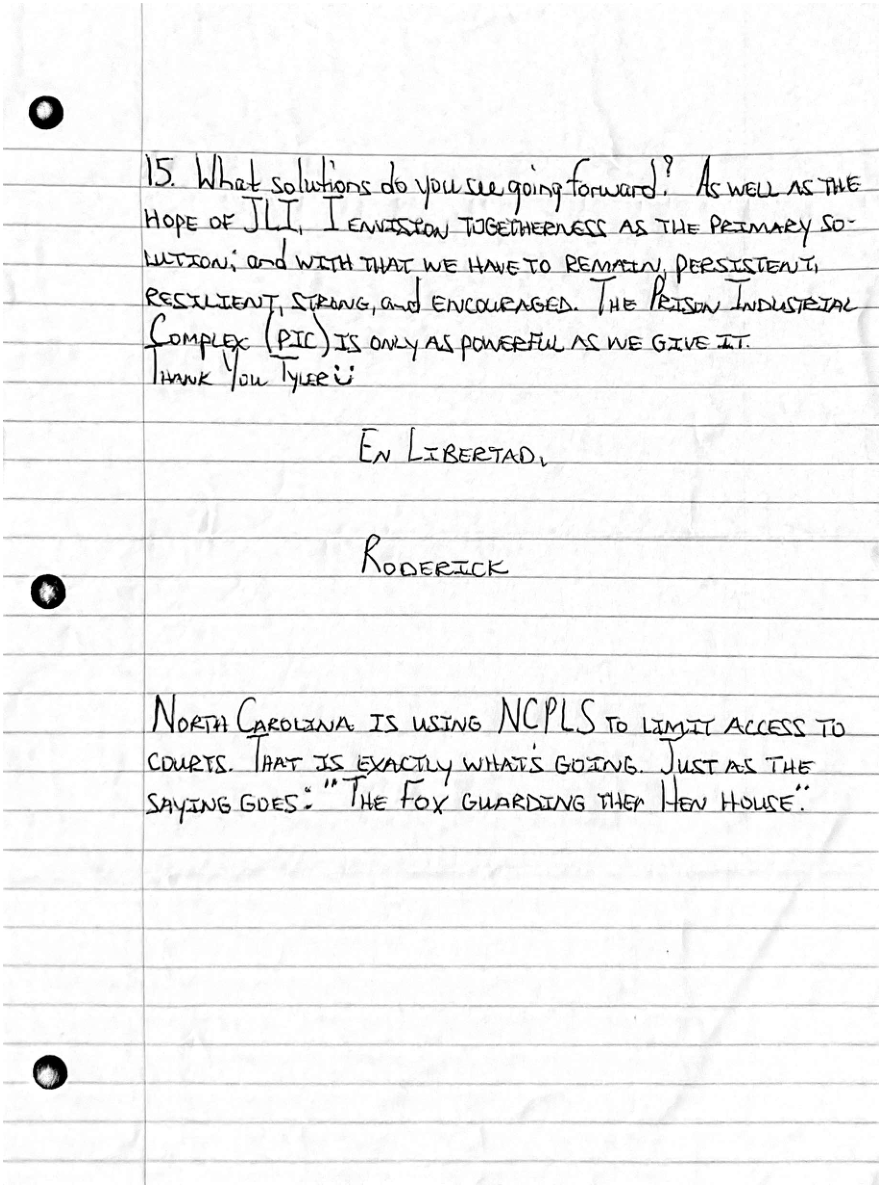 15. What solutions do you see going forward? As WELL AS THE
HOPE OF JLI, I ENVISION TOGETHERNESS AS THE PRIMARY SO-
LUTION; and WITH THAT WE HAVE TO REMAIN, PERSISTENT,
RESILIENT, STRONG, and ENCOURAGED. THE PRISON INDUSTRIAL
COMPLEX (PIC) IS ONLY AS POWERFUL AS WE GIVE IT.
THANK YOU TYLER ü
EN LIBERTAD,
RODERICK
NORTH CAROLINA IS USING NCPLS TO LIMIT ACCESS TO
COURTS. THAT IS EXACTLY WHAT'S GOING. JUST AS THE
SAYING GOES: "THE FOX GUARDING THEr HEN HOUSE".